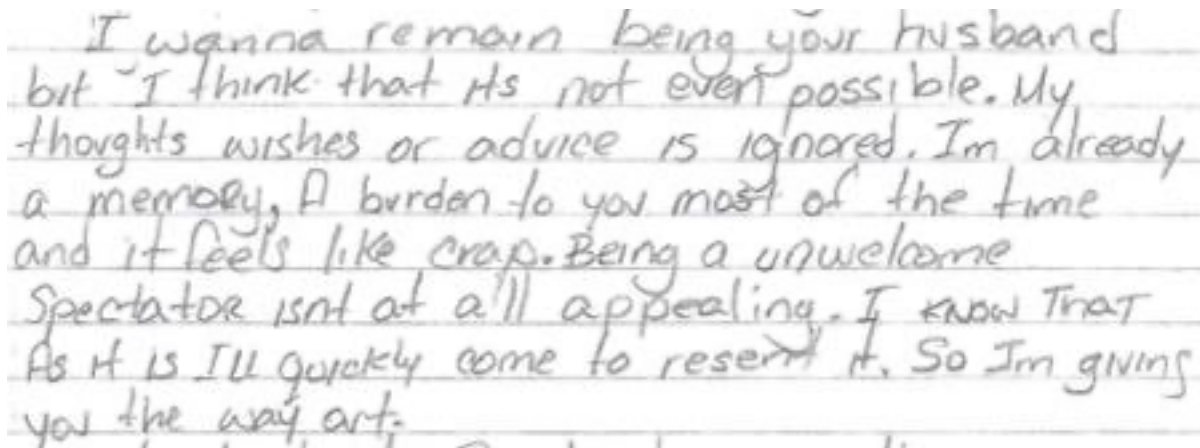 I wanna remain being your husband
but I think that its not even possible. My
thoughts wishes or advice is ignored. Im already
a memory, A burden to you most of the time
and it feels like crap. Being a unwelcome
Spectator isnt at all appealing. I know That
As it is I'll quickly come to resent it. So Im giving
you the way out.